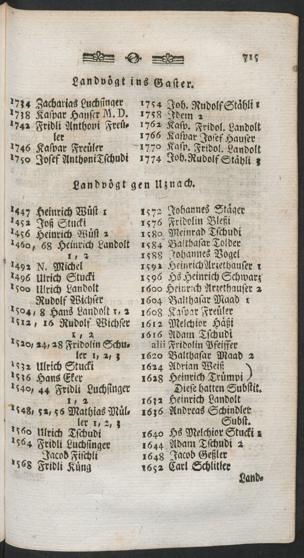 715
Landvögt ins Gaster.
1734 Zacharias Luchsinger
1738 Kaspar Hauser M. D.
1742 Fridli Anthoni Freüler
1746 Kaspar Freüler
1750 Josef Anthoni Tschudi
1754 Joh. Rudolf Stähli 1
1758 Idem 2
1762 Kasp. Fridol. Landolt
1766 Kaspar Josef Hauser
1770 Kasp. Fridol. Landolt
1774 Joh. Rudolf Stähli 3
Landvögt gen Uznach.
1447 Heinrich Wüst 1
1452 Joß Stucki
1456 Heinrich Wüst 2
1460, 68 Heinrich Landolt
1, 2
1492 N. Michel
1496 Ulrich Stucki
1500 Ulrich Landolt
Rudolf Wichser
1504, 8 Hans Landolt 1, 2
1512, 16 Rudolf Wichser
1, 2
1520, 24, 28 Fridolin Schuler 1, 2, 3
1532 Ulrich Stucki
1536 Hans Eker
1540, 44 Fridli Luchsinger
1, 2
1548, 52, 56 Mathias Müller 1, 2, 3
1560 Ulrich Tschudi
1564 Fridli Luchsinger
Jacob Fischli
1568 Fridli Küng
1572 Johannes Stäger
1576 Fridolin Bleßi
1580 Meinrad Tschudi
1584 Balthasar Tolder
1588 Johannes Vogel
1592 Heinrich Arzethauser 1
1596 Hs Heinrich Schwarz
1600 Heinrich Arzethauser 2
1604 Balthasar Maad 1
1608 Kaspar Freüler
1612 Melchior Häßi
1616 Adam Tschudi
alii Fridolin Pfeiffer
1620 Balthasar Maad 2
1624 Adrian Weiß
1628 Heinrich Trümpi )
Diese hatten Substit.
1632 Heinrich Landolt
1636 Andreas Schindler
Subst.
1640 Hs Melchior Stucki 1
1644 Adam Tschudi 2
1648 Jacob Geßler
1652 Carl Schittler
Land-